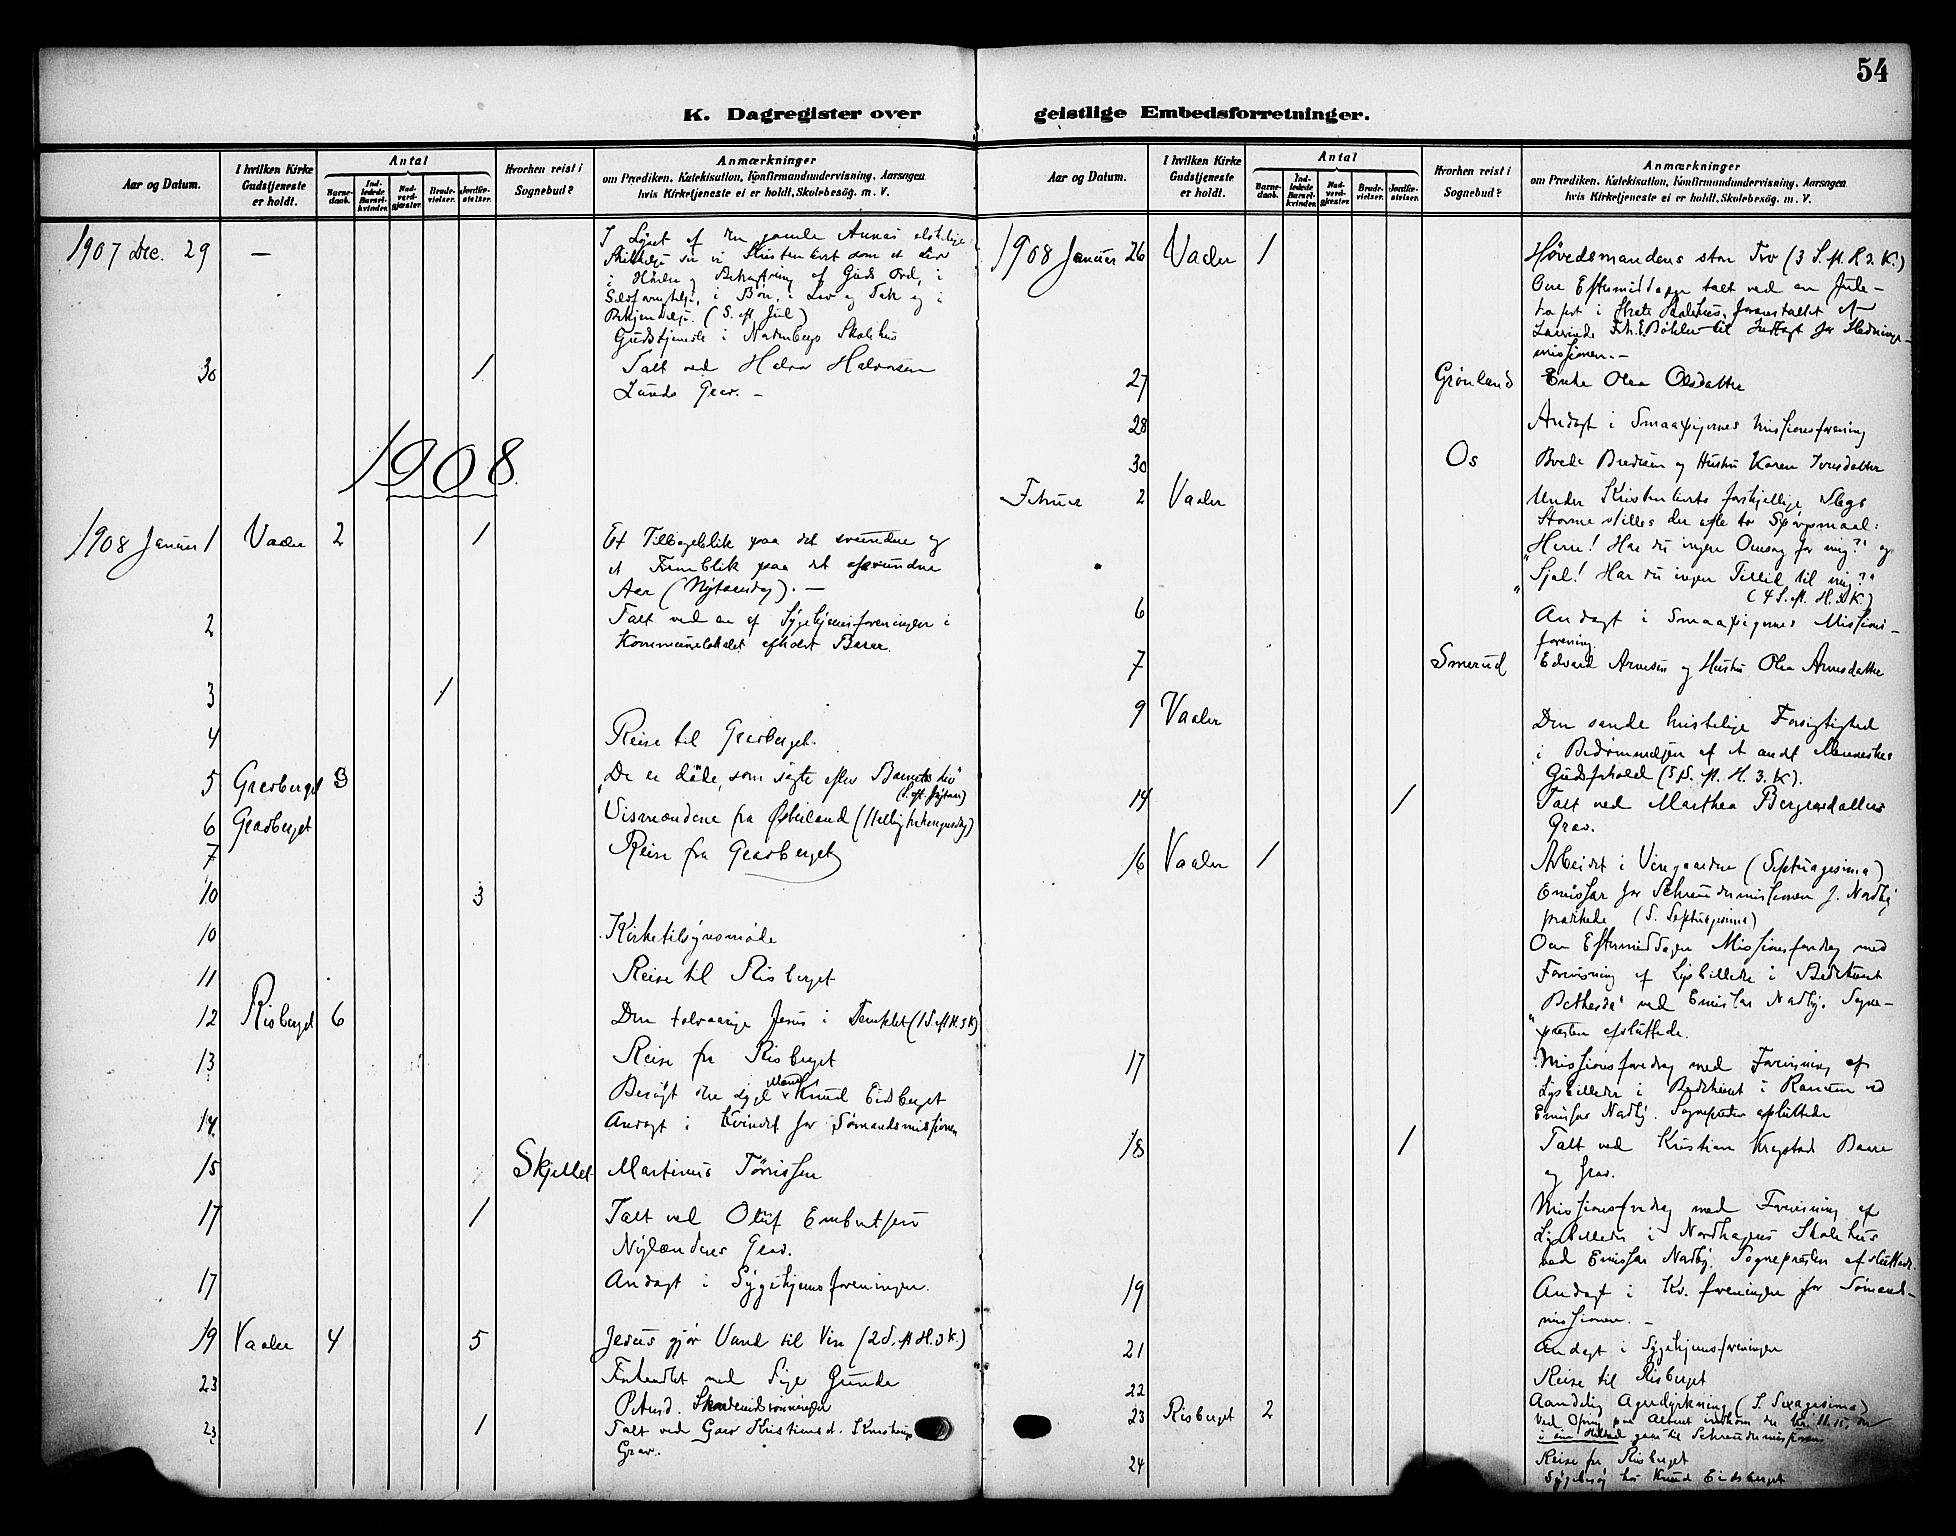 54
K. Dagregister over geistlige Embedsforretninger.
Aar og Datum.
I hvilken Kirke
Gudstjeneste
er holdt.
Antal
Barne-
daab.
Ind-
ledede
Barsel-
kvinder.
Nad-
verd-
gjæster.
Brude-
vielser.
Jordfæ-
stelser.
Hvorhen reist i
Sognebud?
Anmærkninger
om Prædiken, Katekisation, Konfirmandundervisning, Aarsagen
hvis Kirketjeneste ei er holdt, Skolebesøg. m. V.
1907 Dec. 29 — I Lyset af den gamle Annas
i Bøn, i Lov og Tak og i
(S. eft. Jul)
Gudstjeneste i Skolehus
30 1 Talt ved Halvor Halvorsen
Lunds Grav. —
1908.
1908 Januar 1 Vaaler 2 1 Et Tilbageblik paa det svundne og
et Fremblik paa det oprundne
Aar (Nytaarsdag). —
2 Talt ved en af Sygehjemsforeningen i
Kommunelokalet afholdt Basar.
3 1
4 Reise til Græsberget.
5 Græsberget 3 "De er døde, som søgte efter Barnets Liv"
(S. eft. Nytaar)
6 Græsberget Vismændene fra Østerland (Hellig trekongersdag)
7 Reise fra Græsberget
10 3
10 Kirketilsynsmøde
11 Reise til Risberget
12 Risberget 6 Den tolvaarige Jesus i Templet (1 S. eft H. 3 K)
13 Reise fra Risberget
Besøgt den syge Mand Knud Eidsberget
14 Andagt i Kvindef for Sømandsmissionen
15 Skjellet Martinus Tørrissen
17 1 Talt ved Oluf Embretsen
Nylændens Grav.
17 Andagt i Sygehjemsforeningen.
19 Vaaler 4 5 Jesus gjør Vand til Vin (2 S. eft H. 3 K.)
23 ved Syge Gunda
23 1 Talt ved Kristiansd.
Grav.
Aar og Datum.
I hvilken Kirke
Gudstjeneste
er holdt.
Antal
Barne-
daab.
Ind-
ledede
Barsel-
kvinder.
Nad-
verd-
gjæster.
Brude-
vielser.
Jordfæ-
stelser.
Hvorhen reist i
Sognebud?
Anmærkninger
om Prædiken, Katekisation, Konfirmandundervisning, Aarsagen
hvis Kirketjeneste ei er holdt, Skolebesøg. m. V.
1908 Januar 26 Vaaler 1 Høvedsmandens store Tro (3 S. eft. H. 3. K.)
Om Eftermiddagen talt ved en Jule-
træfest i Skolehus, foranstaltet af
til Indtægt for Hedninge-
missionen. —
27 Grønland Enke Olea Olsdatter
28 Andagt i Smaapigernes Missionsforening
30 Os Bredesen og Hustru Karen Iversdatter
Februar 2 Vaaler Under Kristenlivets forskjellige Slags
Storme stilles der ofte to Spørgsmaal:
"Herre! Har du ingen Omsorg for mig?" og
"Sjæl! Har du ingen Tillid til mig?"
(4 S. eft. H. 3 K.)
6 Andagt i Smaapigernes Missions-
forening.
7 Smerud Edvard Arnesen og Hustru Olea Arnesdatter
9 Vaaler Den sande kristelige Forsigtighed
i Bedømmelsen af et andet Menneskes
Gudsforhold (5 S. eft. H. 3. K).
14 1 Talt ved Marthea Bergersdatters
Grav.
16 Vaaler 1 Arbeidet i Vingaarden (Septuagesima)
Emissær for Schreudermissionen J. Nadby
prædikede (S. Septuagesima)
Om Eftermiddagen Missionsforedrag med
Forevisning af Lysbilleder i Bedehuset
"Bethesda" ved Emissær Nadby. Sogne-
præsten afsluttede.
17 Missionsforedrag med Forevisning af
Lysbilleder i Bedehuset i Ranum ved
Emissær Nadby. Sognepræsten afsluttede
18 1 Talt ved Kristian Baare
og Grav.
Missionsforedrag med Forevisning af
Lysbilleder i Nordhagens Skolehus
ved Emissær Nadby. Sognepræsten afsluttede.
19 Andagt i Kv. foreningen for Sømands-
missionen. —
21 Andagt i Sygehjemsforeningen
22 Reise til Risberget
23 Risberget 2 Aandelig Agerdyrkning (S. Sexagesima)
Ved Ofring paa Alteret indkom der
gaar til Schreudermissionen
24 Reise fra Risberget
Sygebesøg hos Knud Eidsberget